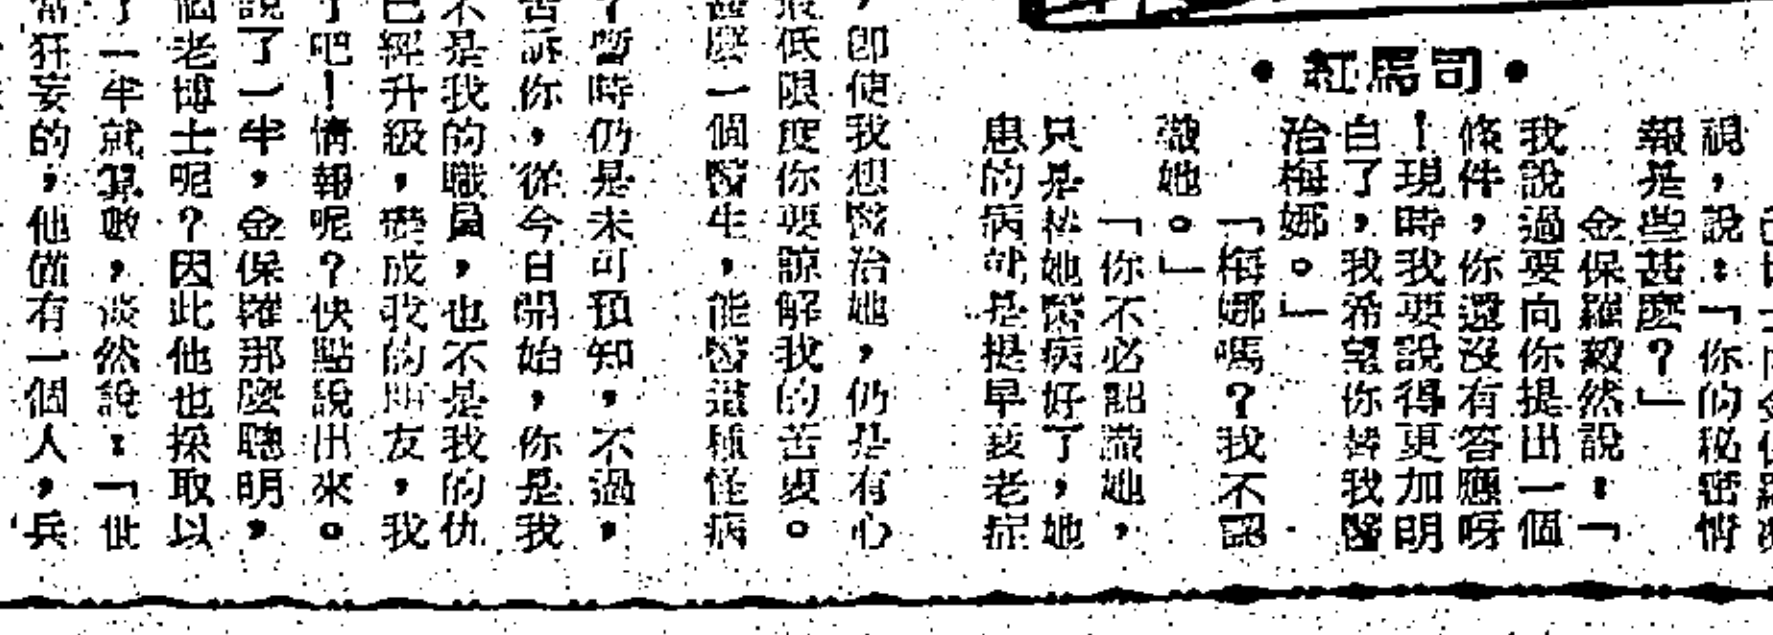 司馬紅
視，說：「你的秘密情
報是些甚麼？」
金保羅毅然說：「
我說過要向你提出一個
條件，你還沒有答應呀
！現時我要說得更加明
白了，我希望你替我醫
治梅娜。」
「梅娜嗎？我不認
識她。」
「你不必認識她，
只是替她醫病好了，她
患的病就是提早衰老症
，即使我想醫治她，仍是有心
最低限度你要諒解我的苦衷。
麼一個醫生，能醫這種怪病
暫時仍是未可預知，不過，
告訴你，從今日開始，你是我
不是我的職員，也不是我的仇
已經升級，變成我的朋友，我
了吧！情報呢？快點說出來。
說了一半，金保羅那麼聰明，
個老博士呢？因此他也採取以
了一半就算數，淡然說：「世
狂妄的，他僅有一個人，兵